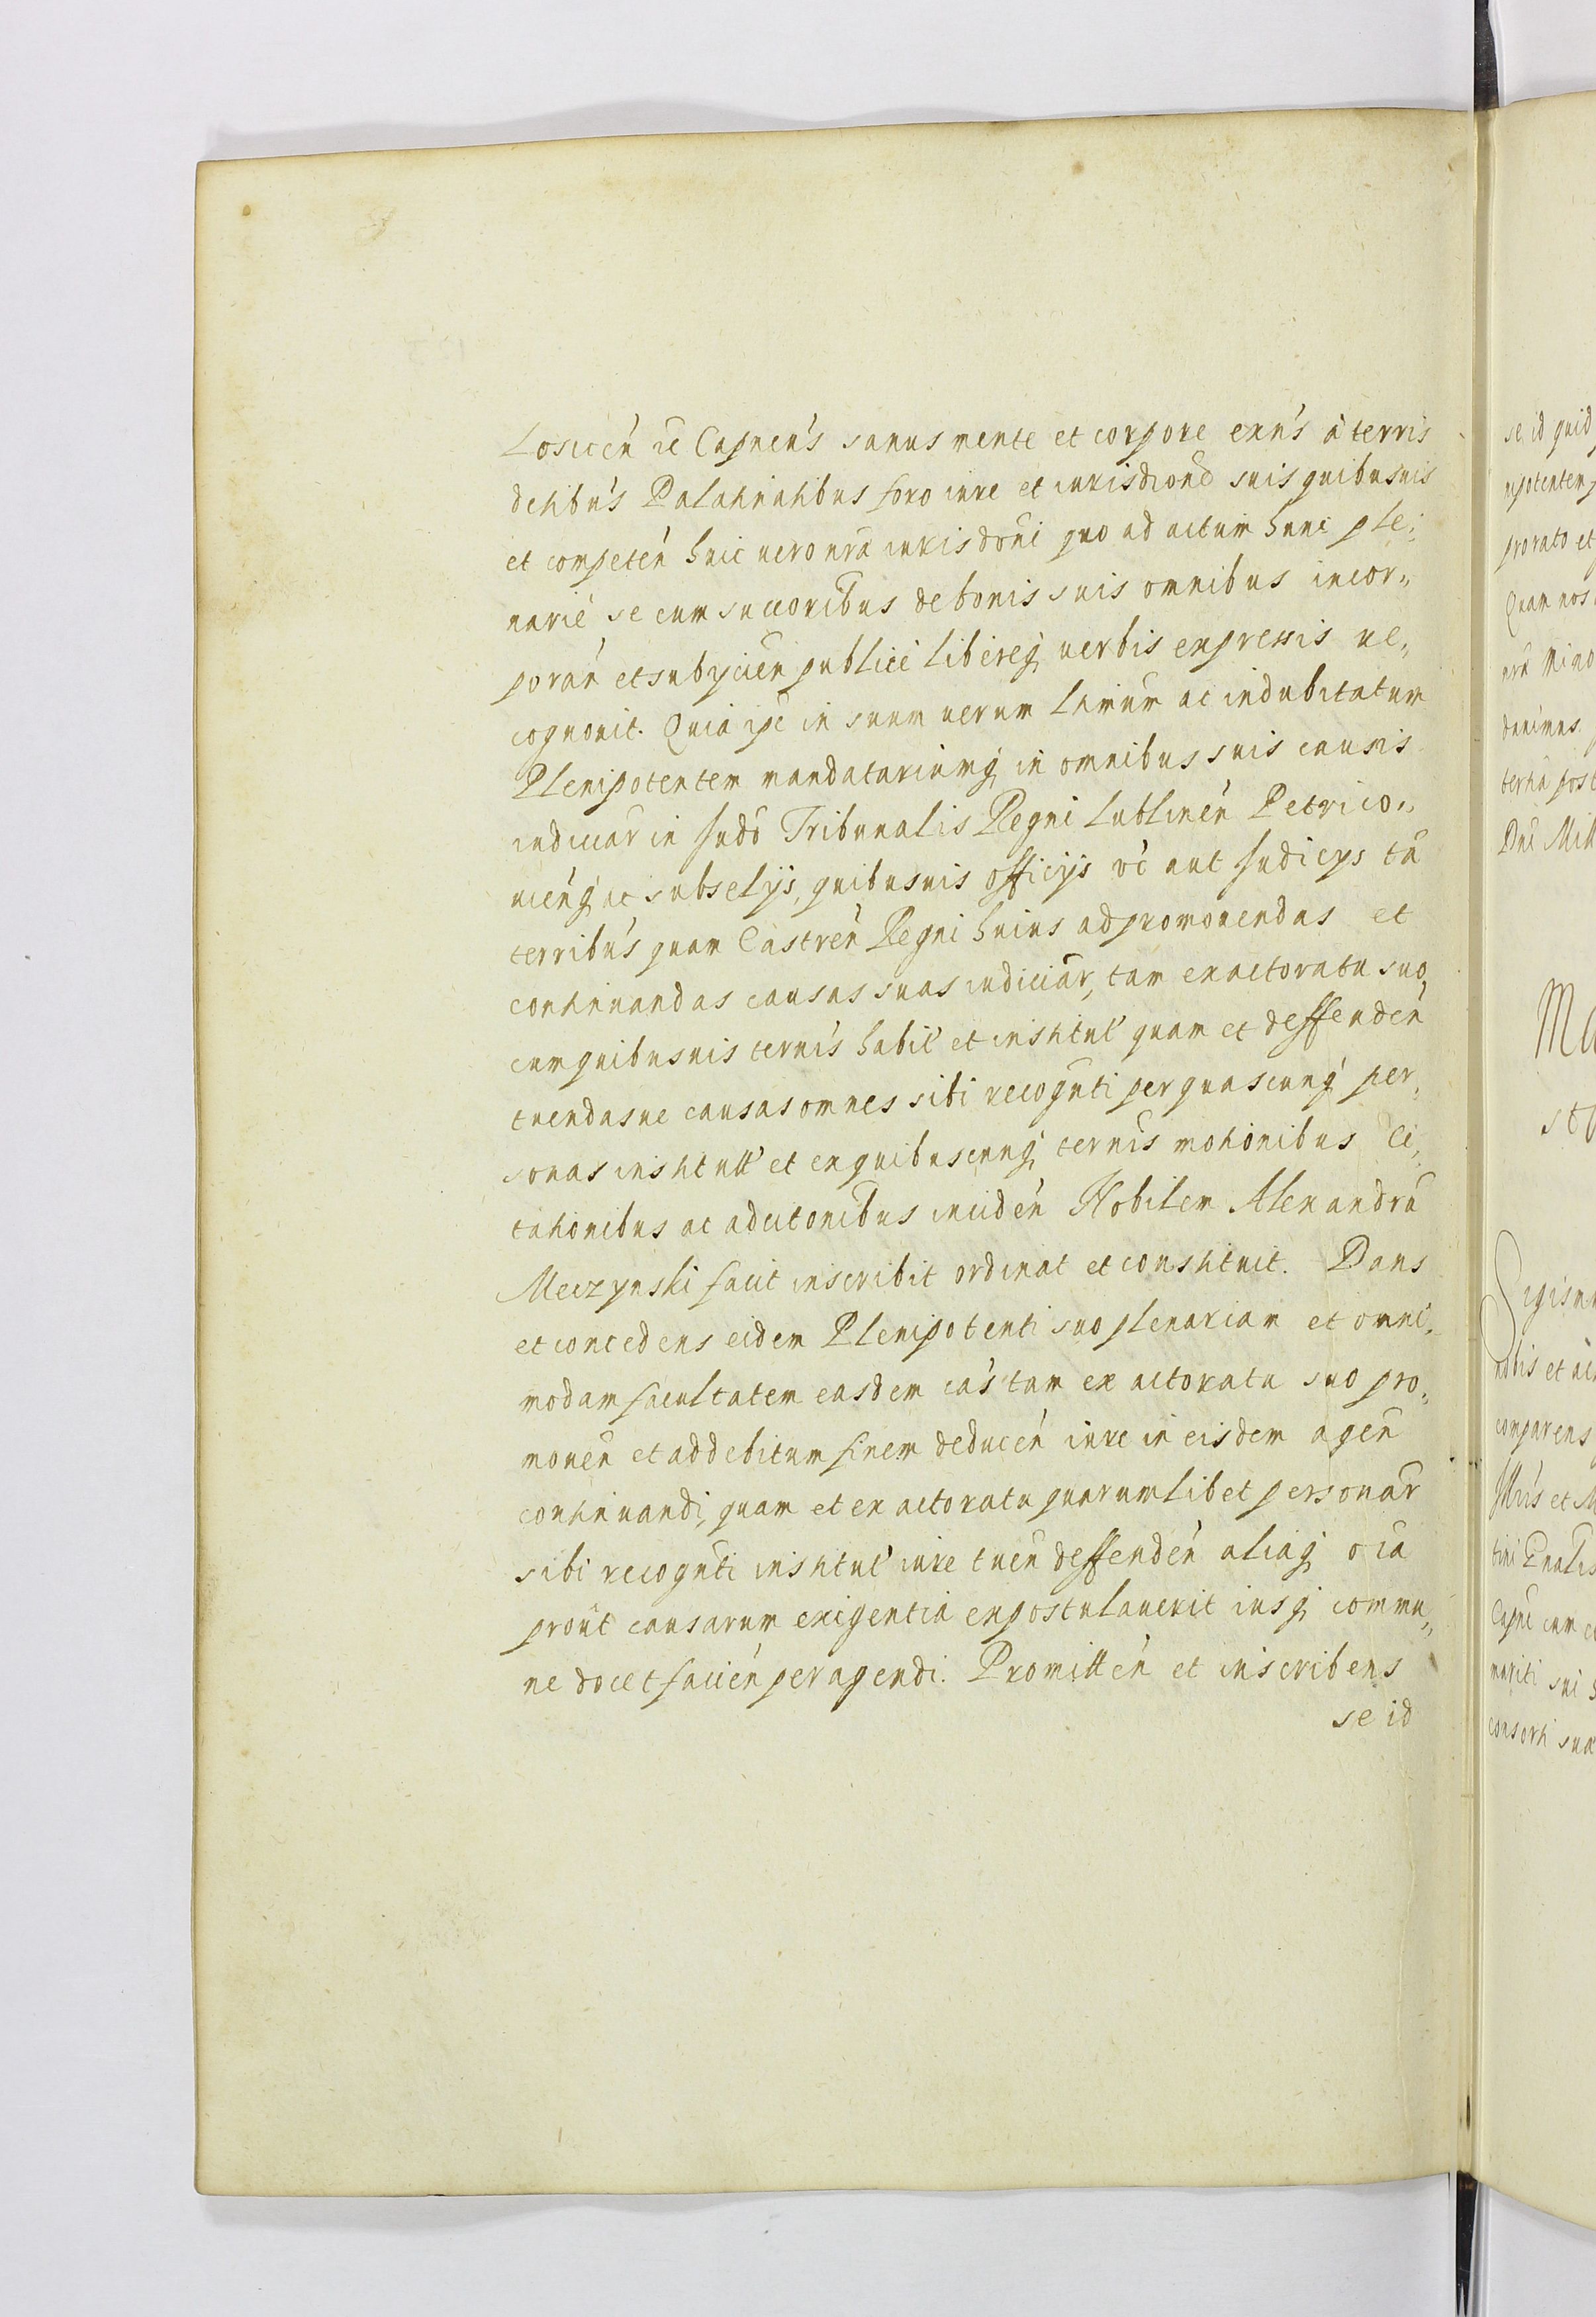 Losicen̄ ac Capnen's sanus mente et corpore exn's à terris
debibu's Palatinatibus foro iure et iurisdione suis quibusuis
et competén huic uero nra iurisdoni quo ad actum hunc ple,,
narié se cum succoribus de bonis suis omnibus incor,,
porán et subycien publicé liberéq uerbis expressis re,,
cognouit. Quia ipe in suum uerum ltimum ac indubitatum
Plenipotentem mandatariumq in omnibus suis causis
iudiciar in Judo Tribunalis Regni Lublinén Petrico,,
uiénq ac subselijs, quibusuis officijs vé aut Judicys tã
terribu's quam Castrén Regni huius ad promouendas et
continuandas causas suas iudiciar, tam ex actoratu suo,
cum quibusuis terni's habit' et instituť quam et deffendén
tuendasue causas omnes sibi recognti per quascunq per,,
sonas institutť et ex quibuscunq ternis motionibus Ci,,
tationibus ac adcitonibus inciden Nobilem Alexandrũ
Meczynski facit inscribit ordinat et constituit. Dans
et concedens eidem Plenipotenti suo plenariam et omni,,
modam facultatem easdem ca's tam ex actoratu suo pro,,
mouen et ad debitum finem deducén iure in eisdem agen
continuandi, quam et ex actoratu quarumlibet personar
sibi recognti instituť iure tuen deffendén aliaq oia
prout causarum exigentia expostulauerit iusq commu,,
ne docet facién peragendi. Promittén et inscribens
se id
se id quid
prorato et
Quam nos
danimus
Sigism
nobis et ac
comparens
mariti sui
consorti suæ